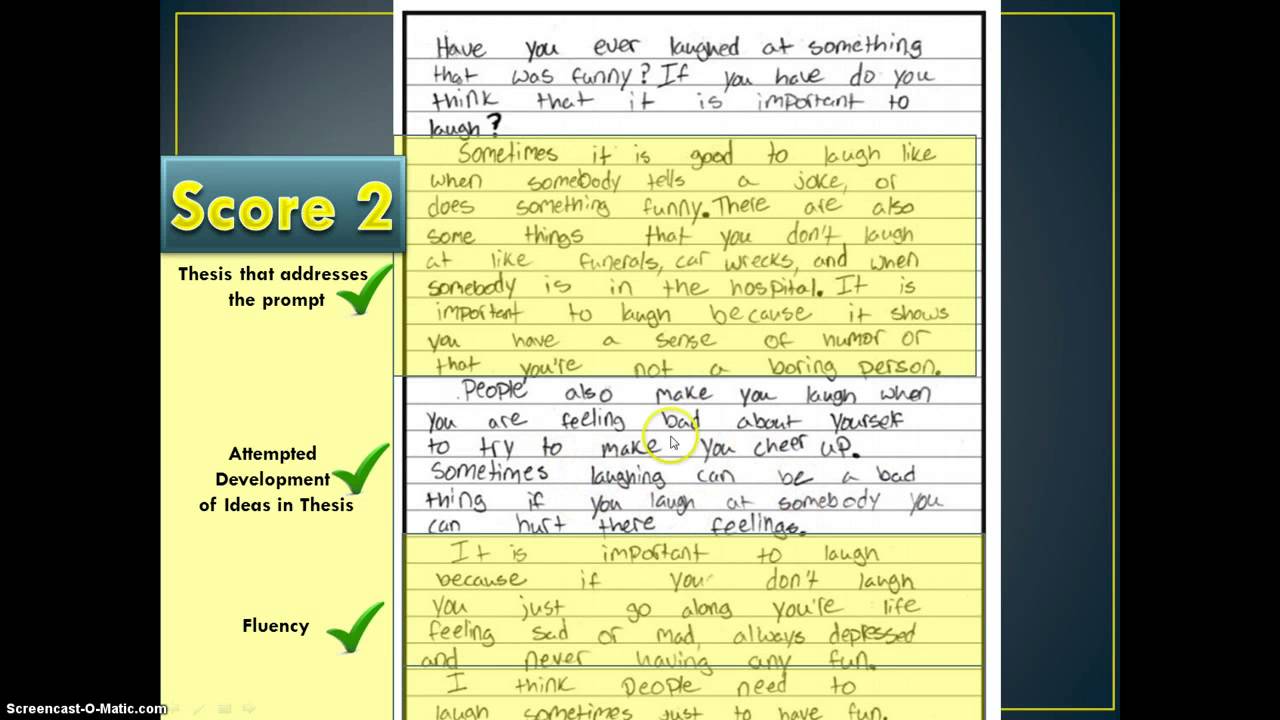 Have you ever laughed at something
that was funny? If you have do you
think that it is important to
laugh?
Sometimes it is good to laugh like
when somebody tells a joke, or
does something funny. There are also
some things that you don't laugh
at like funerals, car wrecks, and when
somebody is in the hospital. It is
important to laugh because it shows
you have a sense of humor or
that you're not a boring person.
People also make you laugh when
you are feeling bad about yourself
to try to make you cheer up.
Sometimes laughing can be a bad
thing if you laugh at somebody you
can hurt there feelings.
It is important to laugh
because if you don't laugh
you just go along you're life
feeling sad or mad, always depressed
and never having any fun.
I think people need to
laugh sometimes just to have fun.
Score 2
Thesis that addresses
the prompt
Attempted
Development
of Ideas in Thesis
Fluency
Screencast-O-Matic.com